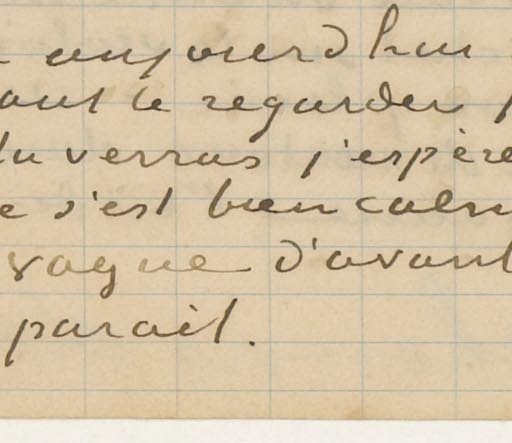 aujourd'hui
le regarder
tu verras j'espère
s'est bien calm
vague d'avant
parait.